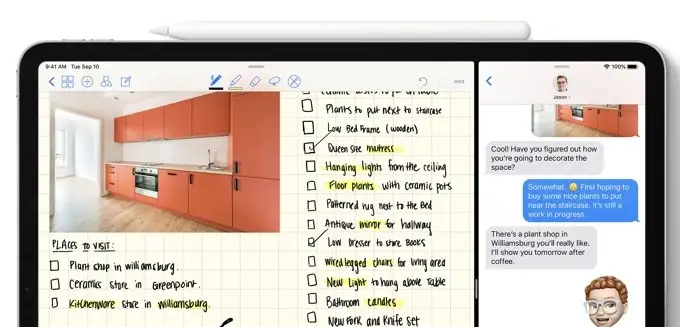 9:41 AM Tue Sep 10
100%
Ceramic
Plants to put next to staircase
Low Bed Frame (wooden)
Queen size mattress
Hanging lights from the ceiling
Floor plants with ceramic pots
Patterned rug next to the Bed
Antique mirror for hallway
Low Dresser to store Books
Wired legged chairs for living area
New Light to hang above Table
Bathroom candles
New Fork and Knife Set
PLACES TO VISIT:
Plant shop in williamsburg.
Ceramics store in Greenpoint.
Kitchenware store in williamsburg.
Jason
Cool! Have you figured out how
you're going to decorate the
space?
Somewhat. 😕 First hoping to
buy some nice plants to put
near the staircase. It's still a
work in progress.
There's a plant shop in
Williamsburg you'll really like.
I'll show you tomorrow after
coffee.